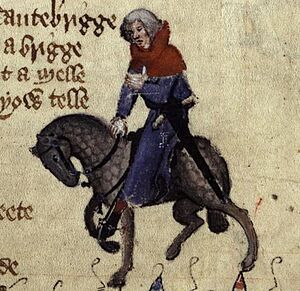 Cantebrigge
a brigge
t a melle
yow telle
ecte
de